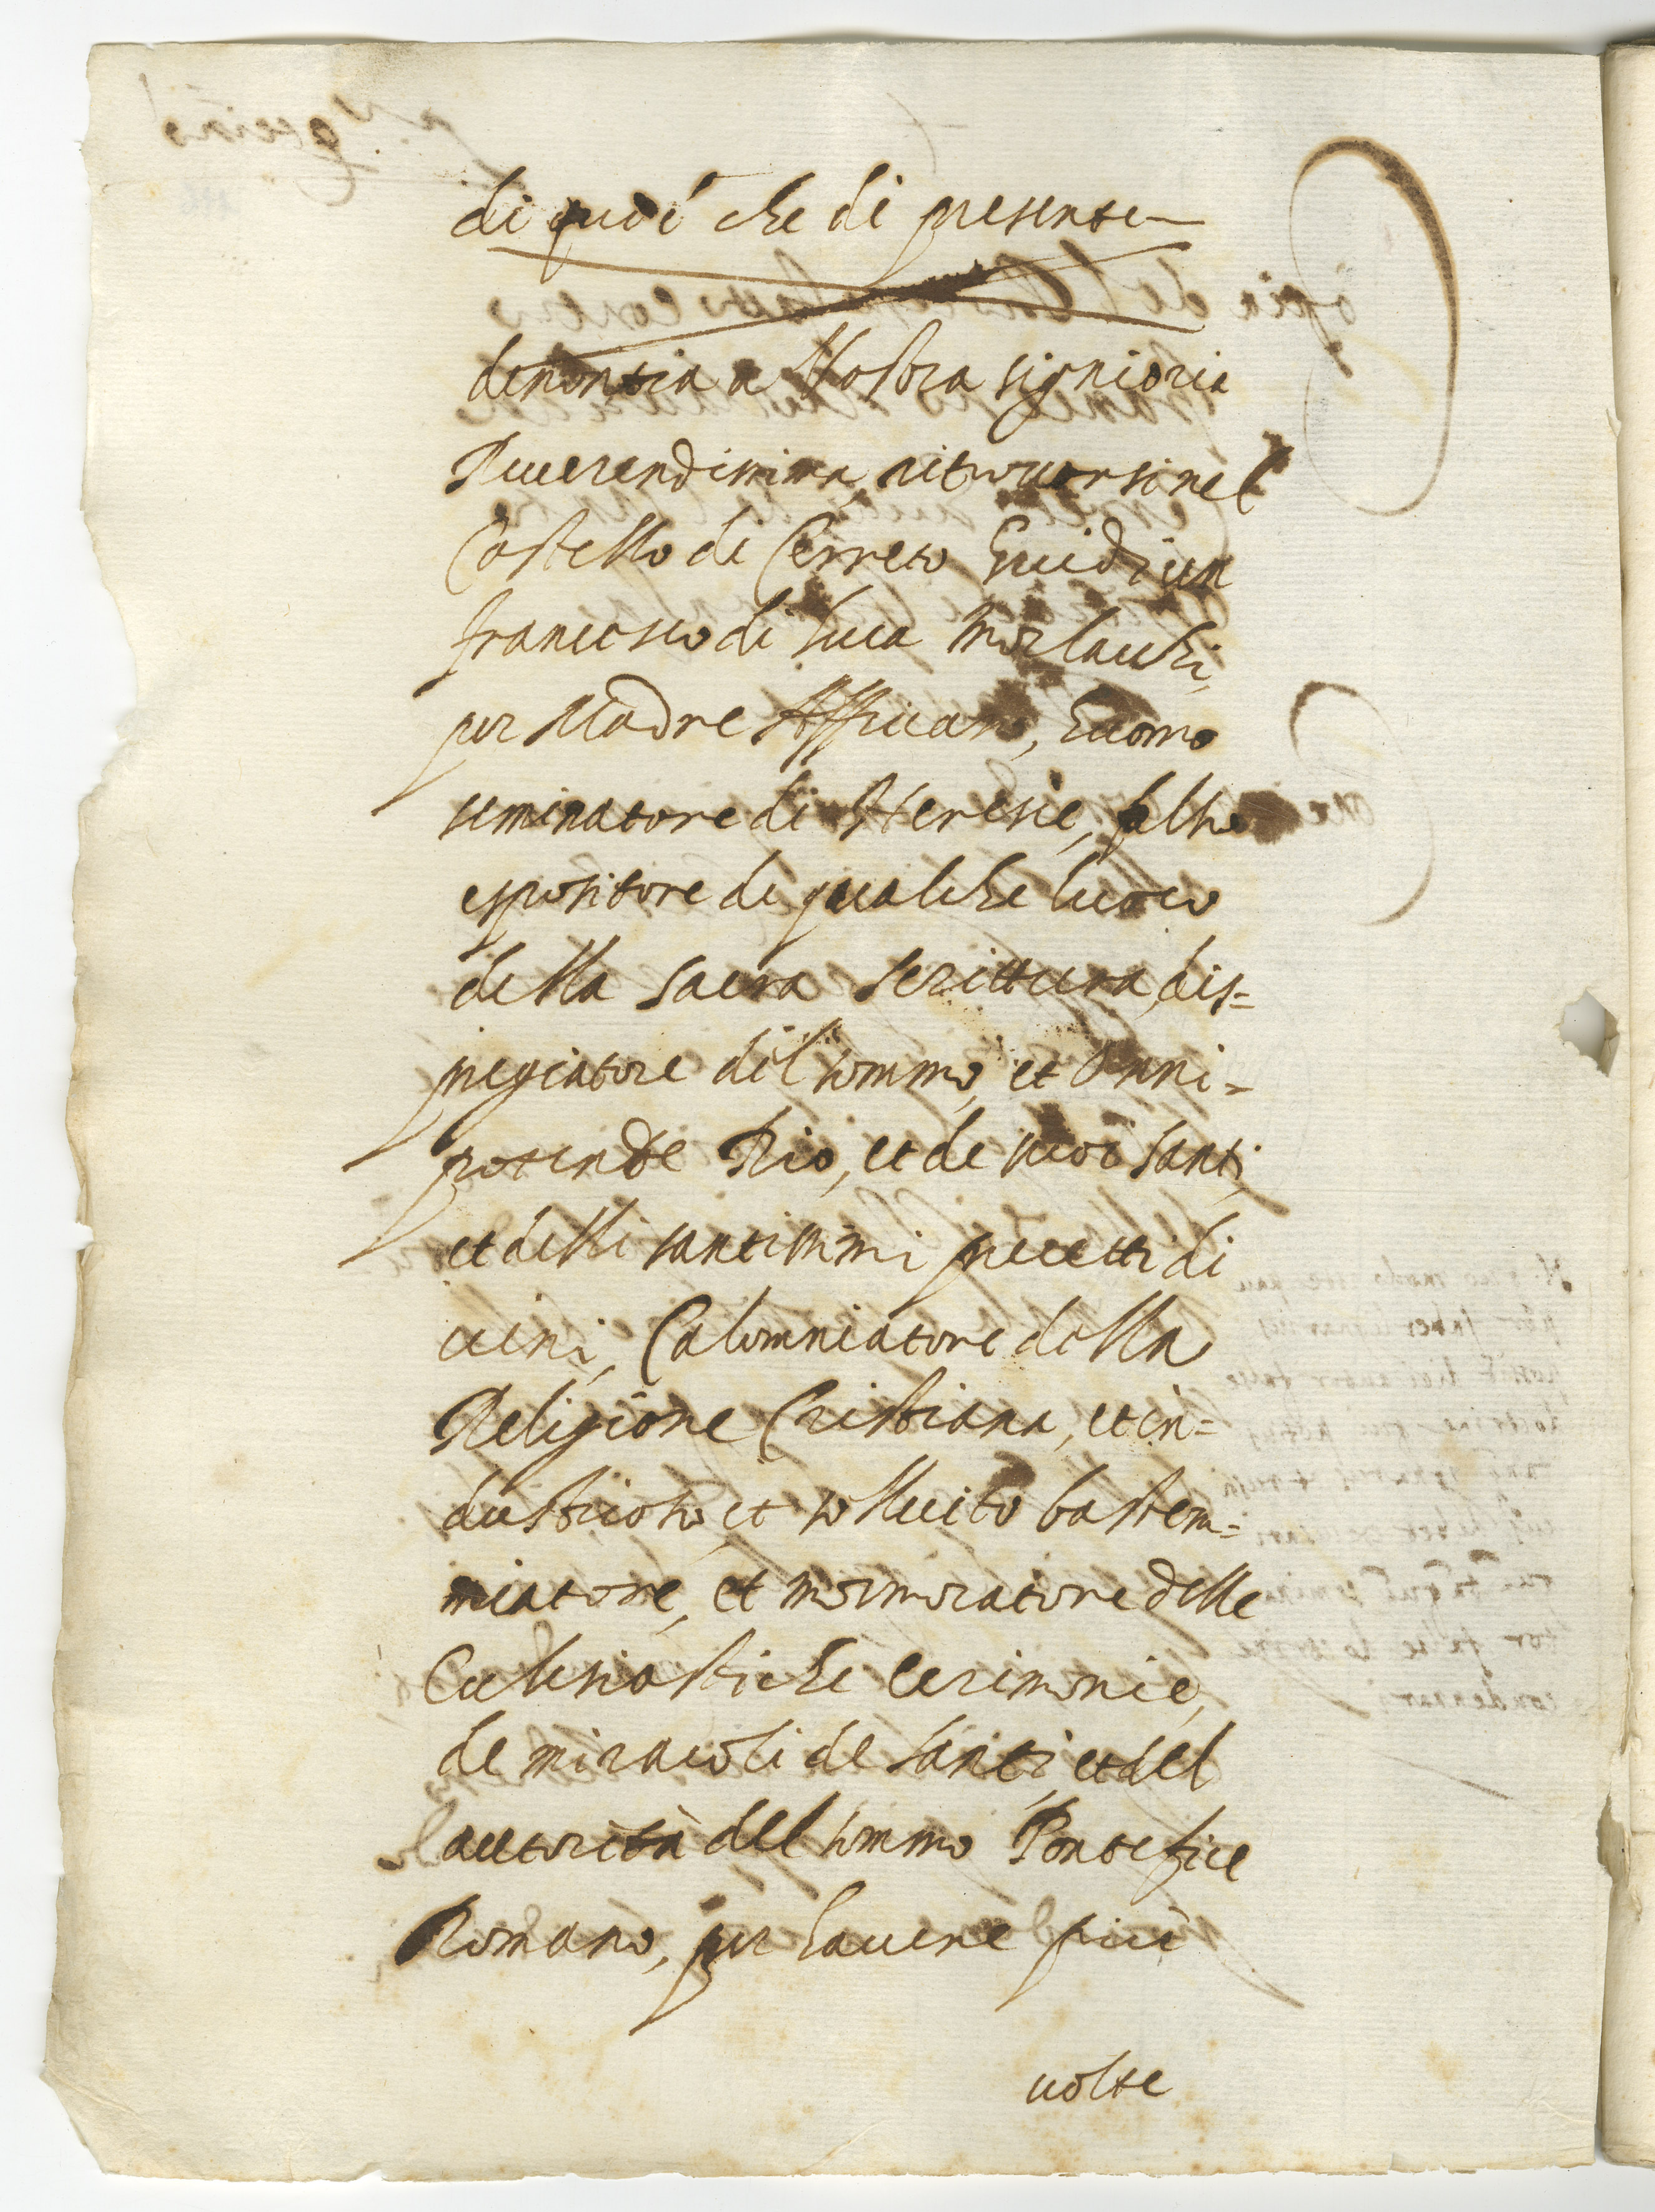 di quei che di presente
denontia a Vostra signioria
Reverendissima, ritrovarsi nel
Castello di Cerreto Guidi un
francesco di luca morlachi,
per Madre Affricano, huomo
seminatore di Heresie, falso
espositore di qualche luoco
della sacra scrittura, dis=
pregiatore del sommo, et Onni=
potende Dio, et de suoi santi,
et delli santissimi precetti di
vini, Calomniatore della
Religione Cristiana, et in=
dustrioso, et sollecito bastem=
miatore, et mormoratore delle
Eclesiastiche Cerimonie,
de miracoli de santi, et del
l autorità del sommo Pontefice
Romano, per havere più
volte